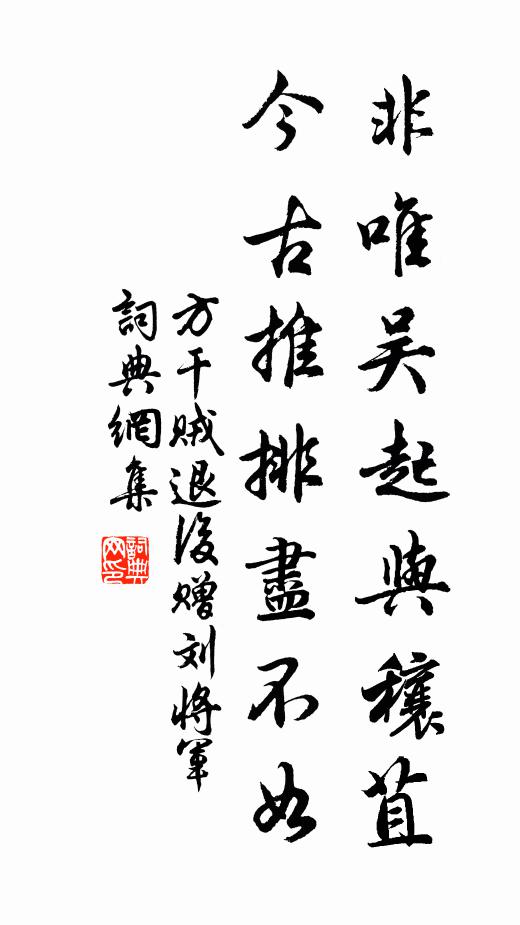 非唯吴起與穰苴
今古推排盡不如
方干贼退後赠刘将軍
詞典網集
詞典网印